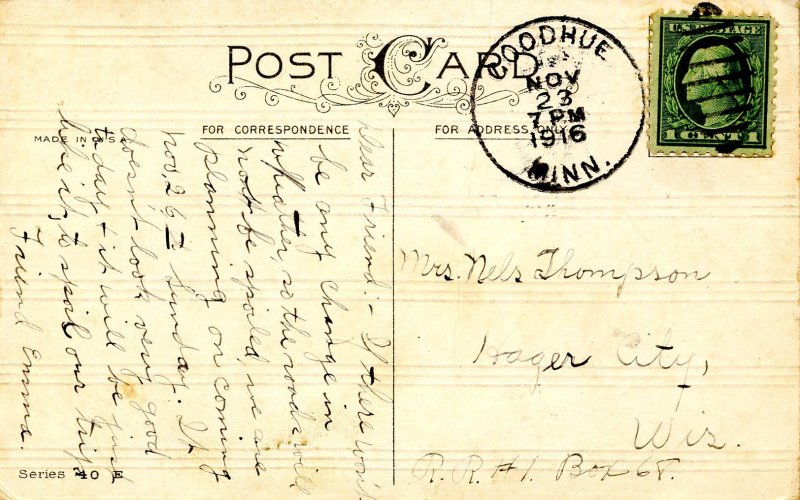 POST CARD
GOODHUE
NOV
23
7 PM
1916
MINN.
U.S. POSTAGE
1 CENT 1
MADE IN U.S.A.
FOR CORRESPONDENCE
FOR ADDRESS ONLY
Dear Friend:- If there won't
be any change in
wheather, so the roads will
not be spoiled, we are
planning on coming
nov. 26th Sunday. It
doesn't look very good
today & it will be just
like it, to spoil our trip
Friend Emma.
Mrs. Nels Thompson
Hager City,
Wis.
R.R.#1. Box 68.
Series 40 E